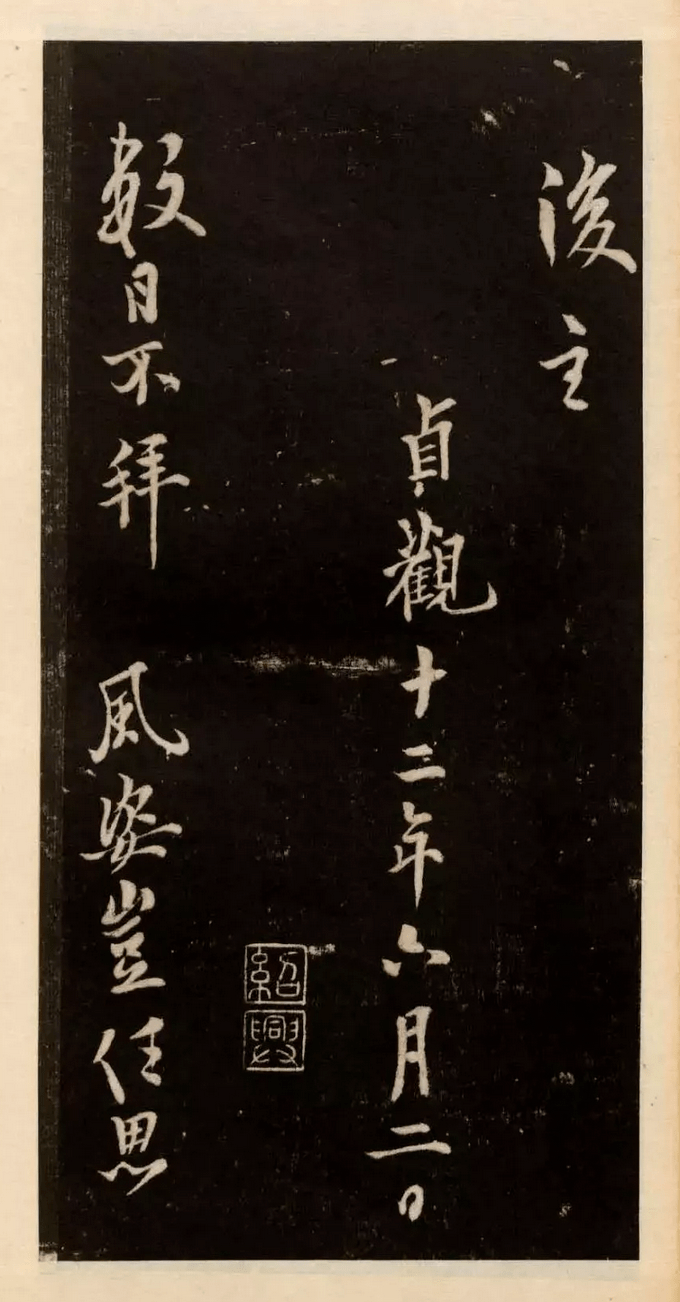 後主
貞觀十三年六月二日
紹興
數日不拜 風姿豈任思